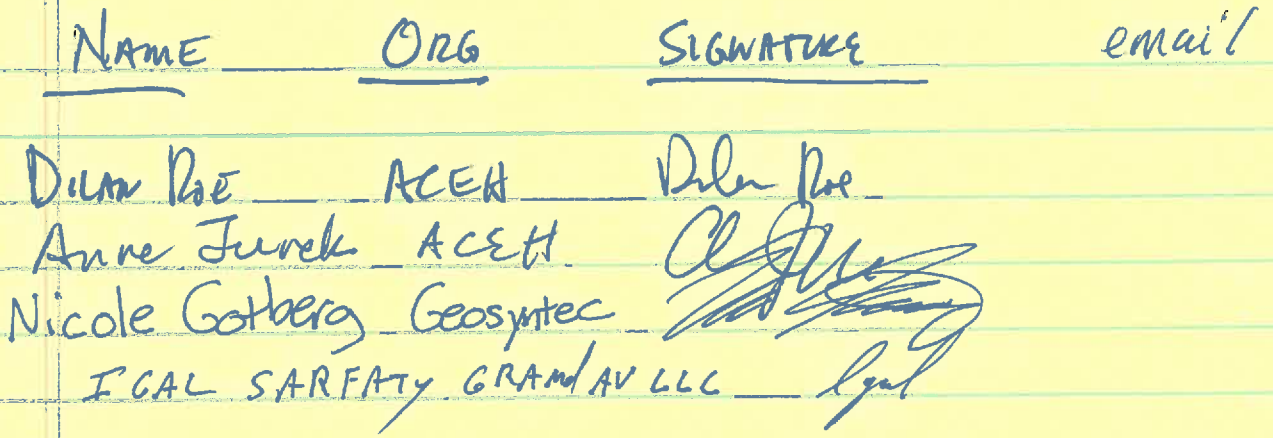 NAME ORG SIGNATURE email
DILAN ROE ACEH Dilan Roe
Anne Jurek ACEH
Nicole Gotberg Geosyntec
IGAL SARFATY GRAND AV LLC Igal